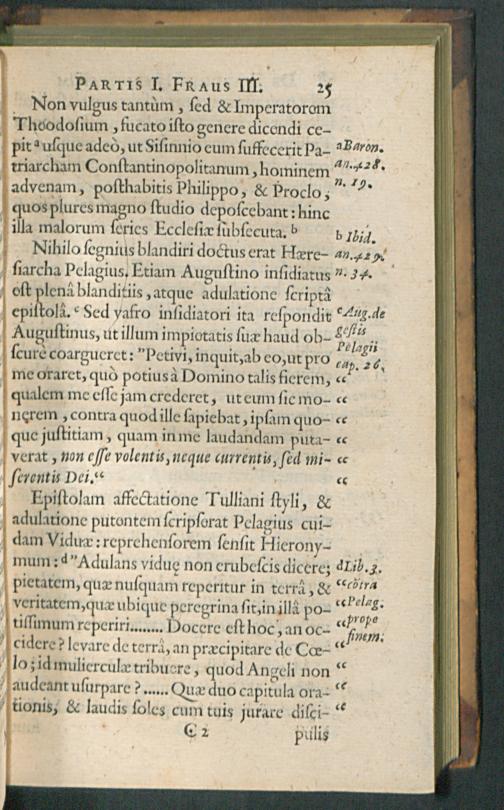 PARTIS I. FRAUS III. 25
Non vulgus tantùm, sed & Imperatorem
Theodosium, fucato isto genere dicendi ce-
pit ᵃ usque adeò, ut Sisinnio eum suffecerit Pa- a Baron.
triarcham Constantinopolitanum, hominem an. 428.
advenam, posthabitis Philippo, & Proclo; n. 19.
quos plures magno studio deposcebant: hinc
illa malorum series Ecclesiæ subsecuta. ᵇ b Ibid.
Nihilo segnius blandiri doctus erat Hære- an. 429.
siarcha Pelagius. Etiam Augustino insidiatus n. 34.
est plenâ blanditiis, atque adulatione scriptâ
epistolâ. ᶜ Sed vafro insidiatori ita respondit c Aug. de
Augustinus, ut illum impietatis suæ haud ob- gestis
scurè coargueret: "Petivi, inquit, ab eo, ut pro Pelagii
me oraret, quò potius à Domino talis fierem, cap. 26.
qualem me esse jam crederet, ut eum sic mo- “
nerem, contra quod ille sapiebat, ipsam quo- “
que justitiam, quam in me laudandam puta- “
verat, non esse volentis, neque currentis, sed mi- “
serentis Dei.“ “
Epistolam affectatione Tulliani styli, &
adulatione putentem scripserat Pelagius cui-
dam Viduæ: reprehensorem sensit Hierony-
mum: ᵈ "Adulans viduę non erubescis dicere; d Lib. 3.
pietatem, quæ nusquam reperitur in terrâ, & “ cōtra
veritatem, quæ ubique peregrina sit, in illâ po- “ Pelag.
tissimum reperiri........ Docere est hoc, an oc- “ prope
cidere? levare de terrâ, an præcipitare de Cœ- “ finem.
lo; id mulierculæ tribuere, quod Angeli non “
audeant usurpare?...... Quæ duo capitula ora- “
tionis, & laudis soles cum tuis jurare disci- “
C 2 pulis